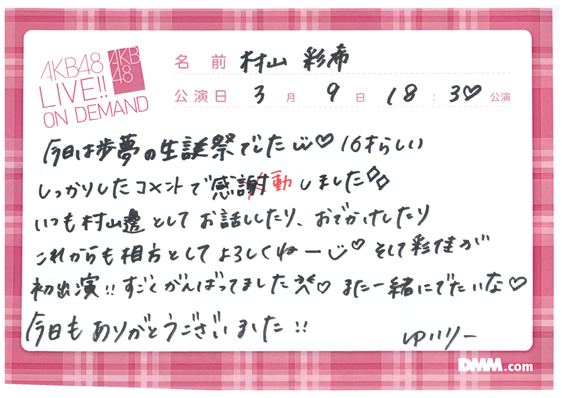 AKB48
LIVE!!
ON DEMAND
AKB
48
名前 村山 彩希
公演日 3月 9日 18:30公演
今日は歩夢の生誕祭でした♡ 16才らしい
しっかりしたコメントで感謝動しました
いつも村山邊としてお話ししたり、おでかけしたり
これからも相方としてよろしくねー♡ そして彩佳が
初出演!! すごくがんばってました♡ また一緒にでたいな♡
今日もありがとうございました!! ゆいりー
DMM.com